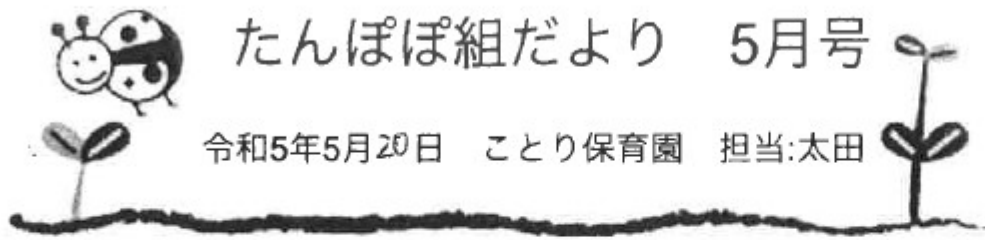 たんぽぽ組だより　5月号
令和5年5月20日　ことり保育園　担当:太田